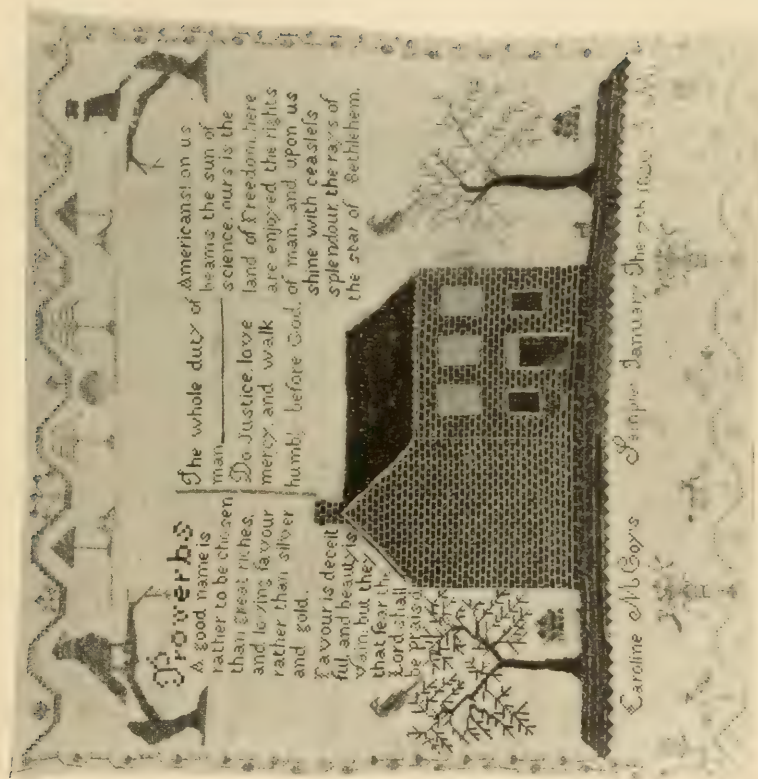 Proverbs
A good name is
rather to be chosen
than great riches,
and loving favour
rather than silver
and gold.
Favour is deceit
ful, and beauty is
vain, but they
that fear the
Lord shall
be prais'd
The whole duty of
man
Do Justice, love
mercy, and walk
humbly before God.
Americans! on us
beams the sun of
science, ours is the
land of Freedom, here
are enjoyed the rights
of man, and upon us
shine with ceasless
splendour the rays of
the star of Bethlehem.
Caroline McCoy's Sampler January The 7th